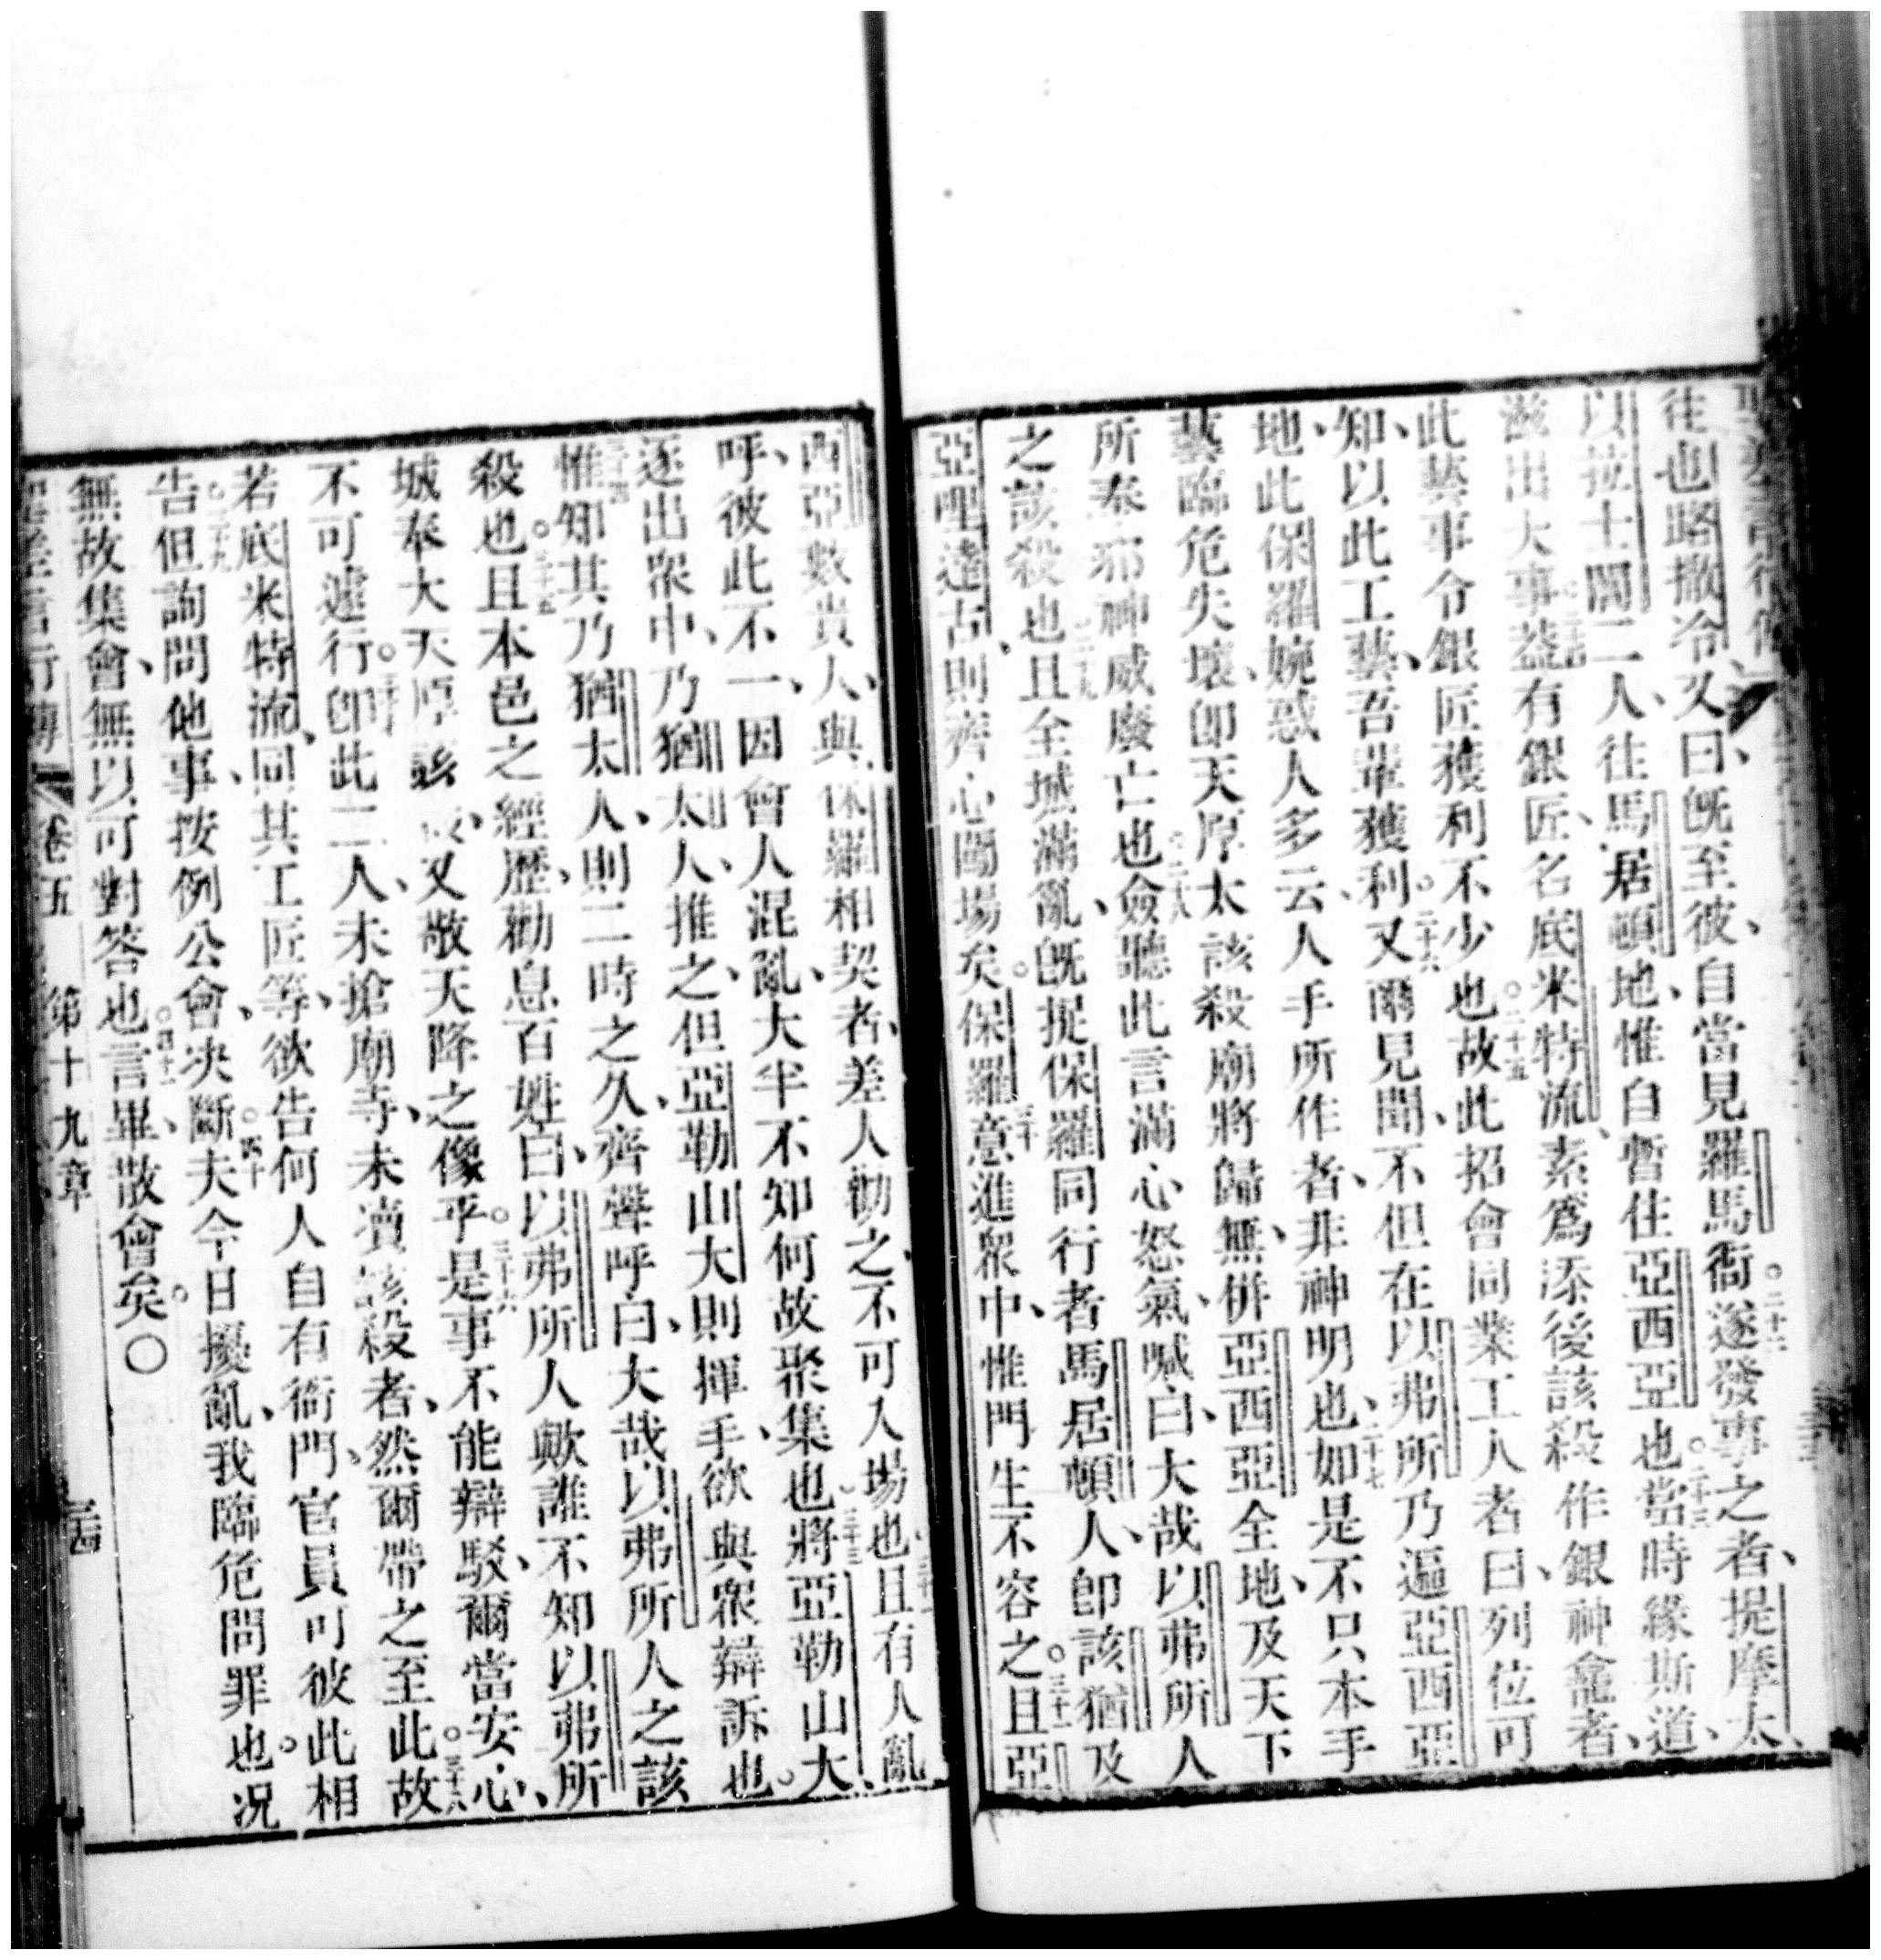 往也路撒冷又曰旣至彼自當見羅馬衙遂發事之者提摩太
以拉士闍二人往馬居頓地惟自暫住亞西亞也當時緣斯道
滋出大事葢有銀匠名底米特流素爲添後該殺作銀神龕者
此藝事令銀匠獲利不少也故此招會同業工人者曰列位可
知以此工藝吾輩獲利又爾見聞不但在以弗所乃遍亞西亞
地此保羅婉惑人多云人手所作者非神明也如是不只本手
藝臨危失壞卽天厚太該殺廟將歸無併亞西亞全地及天下
所奉邪神威廢亡也僉聽此言滿心怒氣喊曰大哉以弗所人
之該殺也且全城滿亂旣捉保羅同行者馬居頓人卽該猶及
亞哩達古則齊心闖場矣保羅意進衆中惟門生不容之且亞
西亞數貴人與保羅相契者差人勸之不可入場也且有人亂
呼彼此不一因會人混亂大半不知何故聚集也將亞勒山大
逐出衆中乃猶太人推之但亞勒山大則揮手欲與衆辯訴也
惟知其乃猶太人則二時之久齊聲呼曰大哉以弗所人之該
殺也且本邑之經歷勸息百姓曰以弗所人歟誰不知以弗所
城奉大天厚該殺又敬天降之像乎是事不能辯駁爾當安心
不可遽行卽此二人未搶廟寺未凟該殺者然爾帶之至此故
若底米特流同其工匠等欲告何人自有衙門官員可彼此相
告但詢問他事按例公會决斷夫今日擾亂我臨危問罪也况
無故集會無以可對答也言畢散會矣〇
聖差言行傳 卷五 第十九章